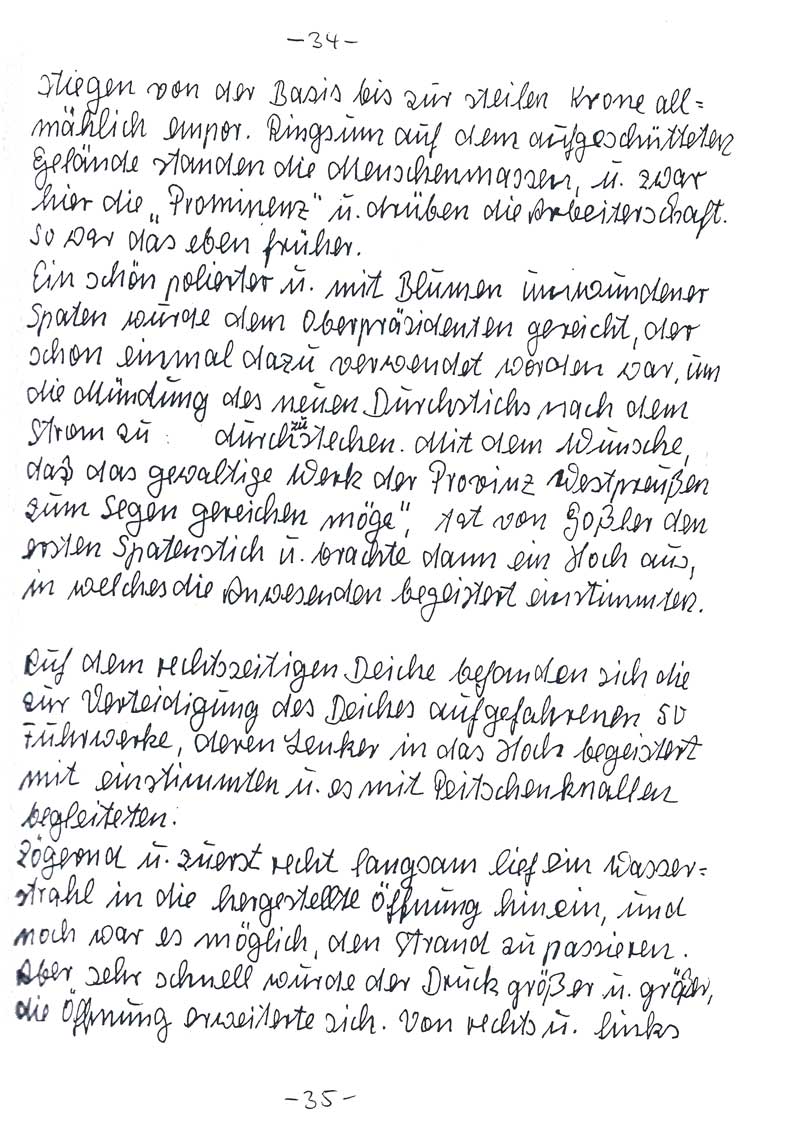 -34-
stiegen von der Basis bis zur steilen Krone all=
mählich empor. Ringsum auf dem aufgeschütteten
Gelände standen die Menschenmassen, u. zwar
hier die „Prominenz" u. drüben die Arbeiterschaft.
So war das eben früher.
Ein schön polierter u. mit Blumen umwundener
Spaten wurde dem Oberpräsidenten gereicht, der
schon einmal dazu verwendet worden war, um
die Mündung des neuen Durchstichs nach dem
Strom zu durchzustechen. Mit dem Wunsche,
daß das gewaltige Werk der Provinz Westpreußen
zum Segen gereichen möge", tat von Goßler den
ersten Spatenstich u. brachte dann ein Hoch aus,
in welches die Anwesenden begeistert einstimmten.
Auf dem rechtszeitigen Deiche befanden sich die
zur Verteidigung des Deiches aufgefahrenen 50
Fuhrwerke, deren Lenker in das Hoch begeistert
mit einstimmten u. es mit Peitschenknallen
begleiteten.
Zögernd u. zuerst recht langsam lief ein Wasser=
strahl in die hergestellte Öffnung hinein, und
noch war es möglich, den Strand zu passieren.
Aber sehr schnell wurde der Druck größer u. größer,
die Öffnung erweiterte sich. Von rechts u. links
-35-